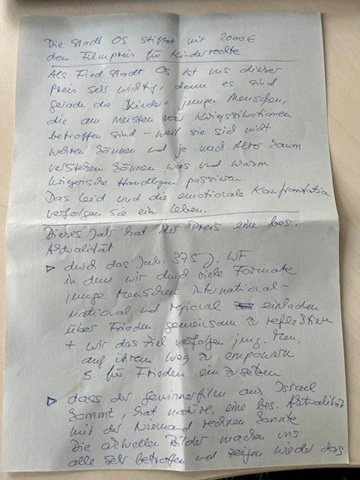 Die Stadt OS stiftet mit 2000 €
den Filmpreis für Kinderrechte
Als Friedstadt OS ist uns dieser
Preis sehr wichtig, denn es sind
gerade die Kinder + jungen Menschen,
die am meisten von Kriegssituationen
betroffen sind – weil sie sich nicht
wehren können und je nach Alter kaum
verstehen können was und warum
kriegerische Handlungen passieren.
Das Leid und die emotionale Konfrontation
verfolgen sie ein Leben.
Dieses Jahr hat der Preis eine bes.
Aktualität
▷ durch das Jub. 375 J. WF
in dem wir durch viele Formate
junge Menschen international-
national und regional einladen
über Frieden gemeinsam zu reflektieren
+ wir das Ziel verfolgen jung. Men.
auf ihrem Weg zu empowern
s. für Frieden einzusetzen
▷ dass der Gewinnerfilm aus Israel
kommt, hat eine bes. Aktualität
mit der Niemand rechnen konnte
Die aktuellen Bilder machen uns
alle sehr betroffen und zeigen wieder das